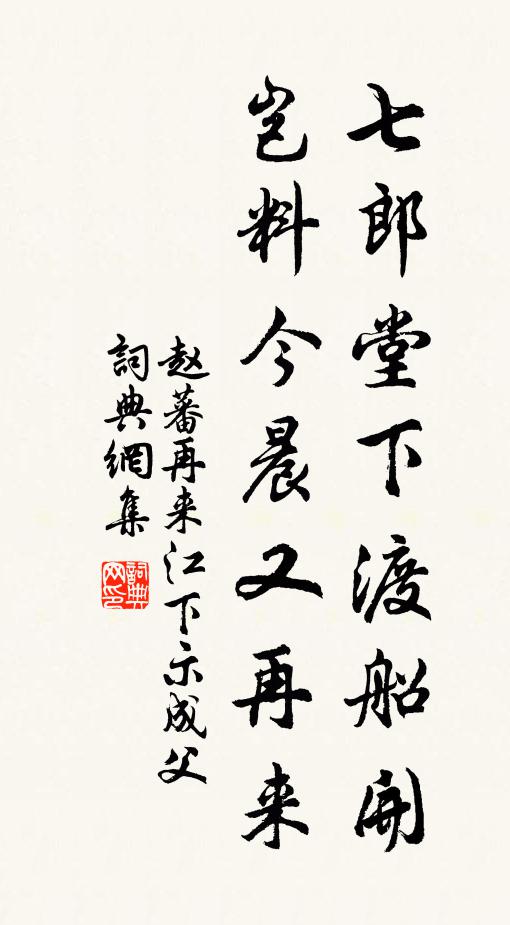 七郎堂下渡船開
豈料今晨又再来
赵蕃再来江下示成父
詞典網集
詞典网印